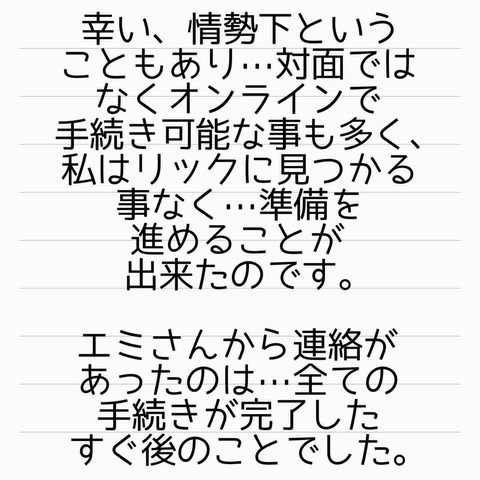 幸い、情勢下という
こともあり…対面では
なくオンラインで
手続き可能な事も多く、
私はリックに見つかる
事なく…準備を
進めることが
出来たのです。
エミさんから連絡が
あったのは…全ての
手続きが完了した
すぐ後のことでした。